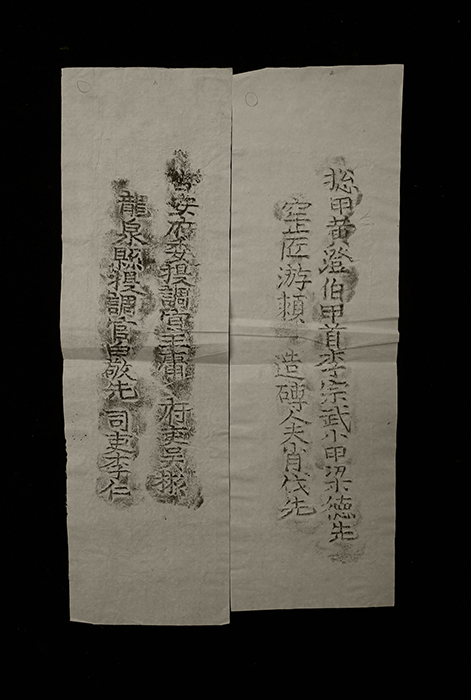 捴甲黄澄伯甲首李宗武小甲梁德先
窑匠游賴 造磚人夫肖伏先
吉安府委提調官王 府吏吳彬
龍泉縣提調官敬先 司吏李仁